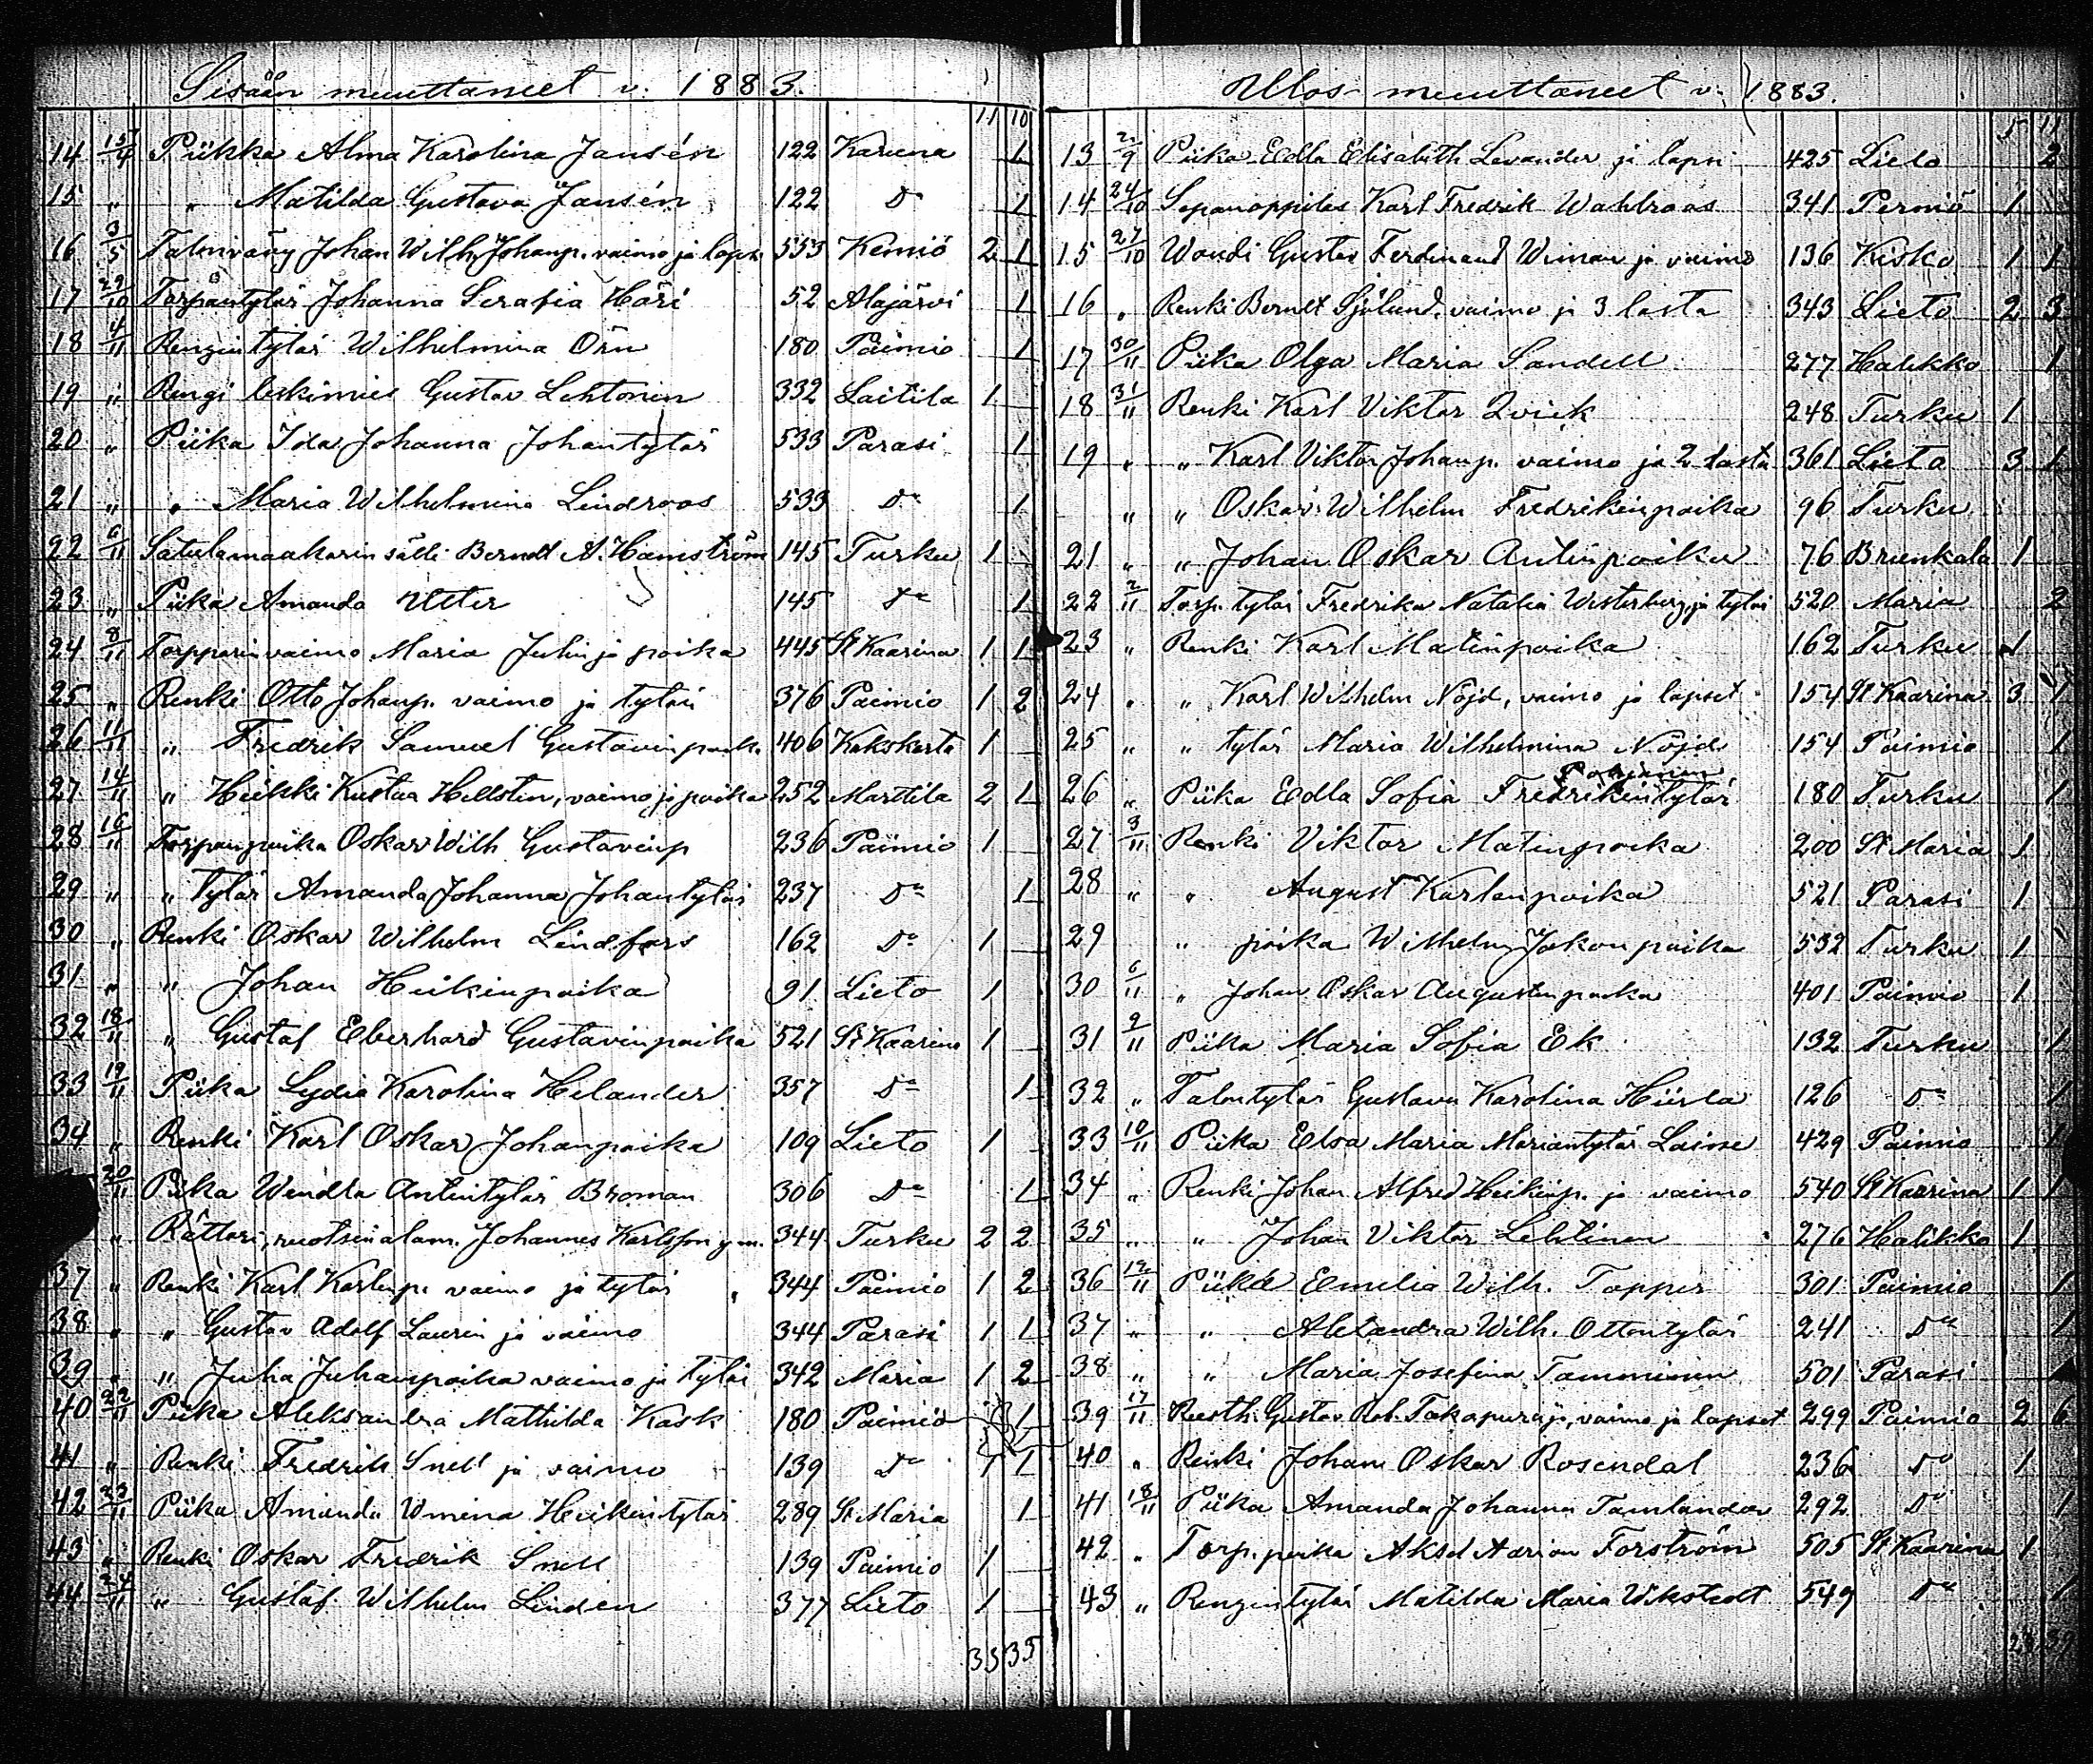 Sisään muuttaneet v. 1883.
11 10
14 15/4 Piikka Alma Karolina Jansén 122 Karuna 1
15 " " Matilda Gustava Jansén 122 Do 1
16 3/5 Talonväng Johan Wilh. Johanp. vaimo ja laps. 553 Kemiö 2 1
17 29/10 Torpantytär Johanna Serafia Häri 52 Alajärvi 1
18 4/11 Rengintytär Wilhelmina Örn 180 Paimio 1
19 " Rengi leskimies Gustav Lehtonen 332 Laitila 1
20 " Piika Ida Johanna Johantytär 533 Parasi 1
21 " " Maria Wilhelmina Lindroos 533 Do 1
22 6/11 Satulamaakarin sälli Berndt A. Hamström 145 Turku 1
23 " Piika Amanda Uter 145 Do 1
24 8/11 Torpparin vaimo Maria Julin ja poika 445 St Kaarina 1 1
25 " Renki Otto Johanp. vaimo ja tytär 376 Paimio 1 2
26 11/11 " Fredrik Samuel Gustavinpoika 406 Kakskerta 1
27 14/11 " Heikki Kustaa Hellsten, vaimo ja poika 252 Marttila 2 1
28 16/11 Torpanpoika Oskar Wilh Gustavinp 236 Paimio 1
29 " " tytär Amanda Johanna Johantytär 237 Do 1
30 " Renki Oskar Wilhelm Lindfors 162 Do 1
31 " " Johan Heikinpoika 91 Lieto 1
32 18/11 " Gustaf Eberhard Gustavinpoika 521 St Kaarina 1
33 19/11 Piika Lydia Karolina Helander 357 Do 1
34 " Renki Karl Oskar Johanpoika 109 Lieto 1
20/11 Piika Wendla Antintytär Broman 306 Do 1
" Rättäri, ruotsinalam. Johannes Karlsson y.m. 344 Turku 2 2
37 " Renki Karl Karlinp. vaimo ja tytär 344 Paimio 1 2
38 " " Gustav Adolf Laurin ja vaimo 344 Parasi 1 1
39 " " Juha Juhanpoika vaimo ja tytär 342 Maria 1 2
40 22/11 Piika Aleksandra Mathilda Kask 180 Paimio 1
41 " Renki Fredrik Snell ja vaimo 139 Do 1 1
42 23/11 Piika Amanda Wmina Heikintytär 289 St Maria 1
43 " Renki Oskar Fredrik Snell 139 Paimio 1
44 24/11 " Gustaf Wilhelm Linden 377 Lieto 1
33 35
Ulos muuttaneet v. 1883.
5 11
13 2/9 Piika Edla Elisabeth Levander ja lapsi 425 Lieto 2
14 24/10 Sepänoppilas Karl Fredrik Wahlroos 341 Perniö 1
15 27/10 Woudi Gustav Ferdinand Wiman ja vaimo 136 Kisko 1 1
16 " Renki Berndt Sjölund, vaimo ja 3 lasta 343 Lieto 2 3
17 30/11 Piika Olga Maria Sandell 277 Halikko 1
18 31/11 Renki Karl Viktor Qvick 248 Turku 1
19 " " Karl Viktor Johanp. vaimo ja 2 lasta 361 Lieto 3 1
" " Oskar Wilhelm Fredrikinpoika 96 Turku
21 " " Johan Oskar Antinpoika 76 Brunkala 1
22 2/11 Torp. tytär Fredrika Natalia Westerberg ja tytär 520 Maria 2
23 " Renki Karl Matinpoika 162 Turku 1
24 " " Karl Wilhelm Nöjd, vaimo ja lapset 154 St Kaarina 3 1
25 " " tytär Maria Wilhelmina Nöjd 154 Paimio 1
26 " Piika Edla Sofia Fredrikintytär 180 Turku 1
27 3/11 Renki Viktor Matinpoika 200 St Maria 1
28 " " August Karlenpoika 521 Parasi 1
29 " poika Wilhelm Jakonpoika 532 Turku 1
30 6/11 " Johan Oskar Augustinpoika 401 Paimio 1
31 9/11 Piika Maria Sofia Ek 132 Turku 1
32 " Talontytär Gustava Karolina Hiirla 126 Do 1
33 10/11 Piika Elsa Maria Mariantytär Laine 429 Paimio 1
34 " Renki Johan Alfred Heikinp. ja vaimo 540 St Kaarina 1 1
35 " " Johan Viktor Lehtinen 276 Halikko 1
36 12/11 Piika Emilia Wilh. Topper 301 Paimio 1
37 " " Alexandra Wilh. Ottontytär 241 Do 1
38 " " Maria Josefina Tamminen 501 Parasi
39 17/11 Rusth. Gustav Rob. Takapuraj, vaimo ja lapset 299 Paimio 2 6
40 " Renki Johan Oskar Rosendal 236 Do 1
41 18/11 Piika Amanda Johanna Tamlander 292 Do 1
42 " Torp. poika Aksel Adrian Forström 505 St Kaarina 1
43 " Rengintytär Matilda Maria Wikstedt 549 Do 1